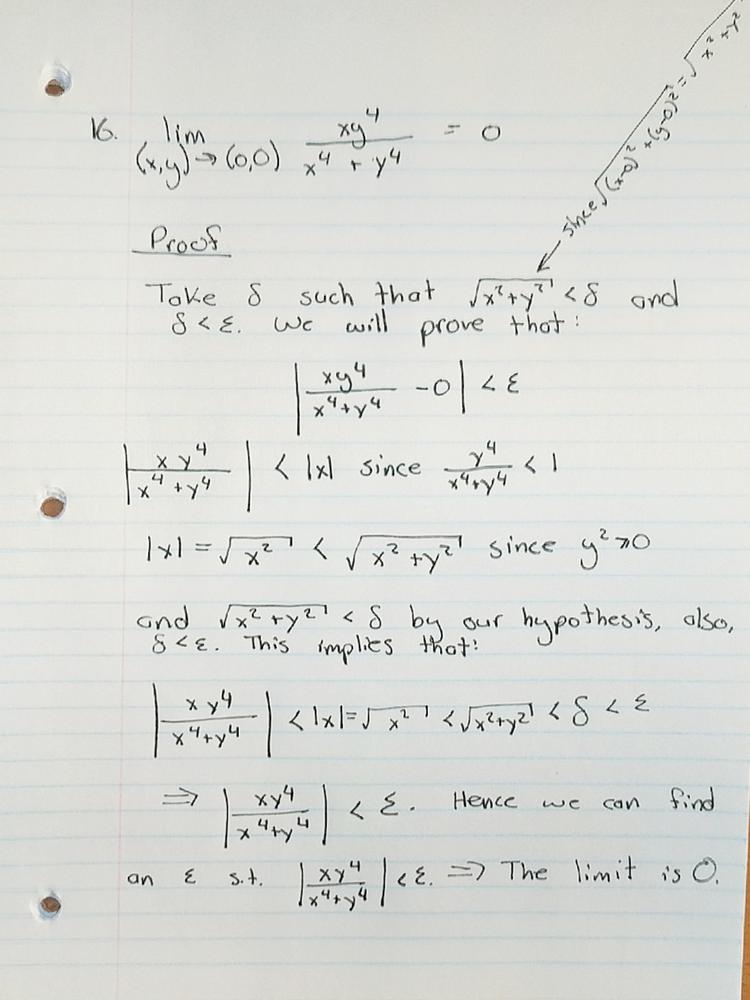 since √(x-0)² + (y-0)² = √x² + y²
16. lim (x,y) → (0,0) xy⁴ / x⁴ + y⁴ = 0
Proof
Take δ such that √x²+y² < δ and
δ < ε. We will prove that:
| xy⁴ / x⁴+y⁴ - 0 | < ε
| xy⁴ / x⁴+y⁴ | < |x| since y⁴ / x⁴+y⁴ < 1
|x| = √x² < √x²+y² since y² ≥ 0
and √x²+y² < δ by our hypothesis, also,
δ < ε. This implies that:
| xy⁴ / x⁴+y⁴ | < |x| = √x² < √x²+y² < δ < ε
⇒ | xy⁴ / x⁴+y⁴ | < ε. Hence we can find
an ε s.t. | xy⁴ / x⁴+y⁴ | < ε. ⇒ The limit is 0.